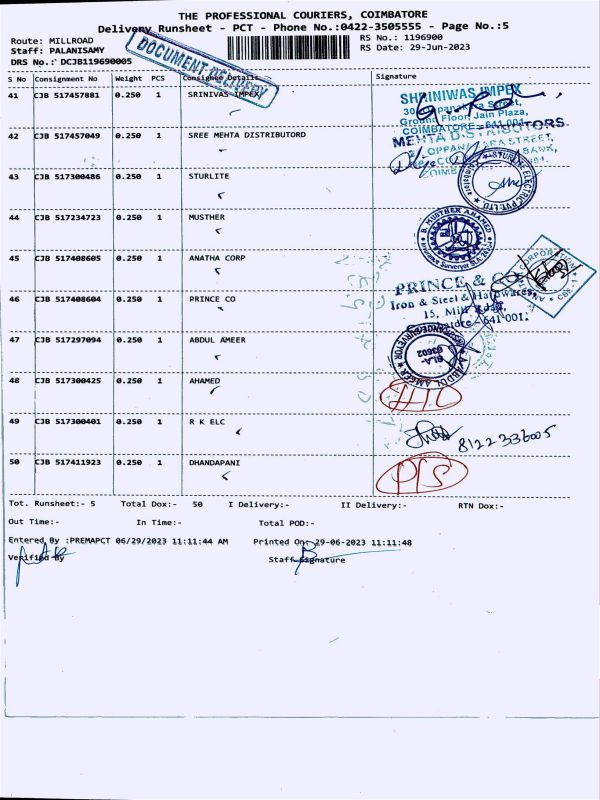 THE PROFESSIONAL COURIERS, COIMBATORE
Delivery Runsheet - PCT - Phone No.:0422-3505555 - Page No.:5
Route: MILLROAD
RS No.: 1196900
Staff: PALANISAMY
RS Date: 29-Jun-2023
DRS No.: DCJB119690005
DOCUMENT DELIVERY
S No Consignment No Weight PCS Consignee Details Signature
41 CJB 517457881 0.250 1 SRINIVAS IMPEX
SHRINIWAS IMPEX
Ground Floor, Jain Plaza,
COIMBATORE - 641 001.
42 CJB 517457049 0.250 1 SREE MEHTA DISTRIBUTORD
MEHTA DISTRIBUTORS
43 CJB 517300486 0.250 1 STURLITE
STURLITE ELECTRIC PVT. LTD.
44 CJB 517234723 0.250 1 MUSTHER
B. MUSTHER AHAMED
45 CJB 517408605 0.250 1 ANATHA CORP
46 CJB 517408604 0.250 1 PRINCE CO
PRINCE & CO
Iron & Steel & Hardwares,
15, Mill Road,
641 001.
47 CJB 517297094 0.250 1 ABDUL AMEER
SLA-
83602
48 CJB 517300425 0.250 1 AHAMED
49 CJB 517300401 0.250 1 R K ELC
8122336005
50 CJB 517411923 0.250 1 DHANDAPANI
Tot. Runsheet:- 5 Total Dox:- 50 I Delivery:- II Delivery:- RTN Dox:-
Out Time:- In Time:- Total POD:-
Entered By :PREMAPCT 06/29/2023 11:11:44 AM Printed On: 29-06-2023 11:11:48
Verified By Staff Signature